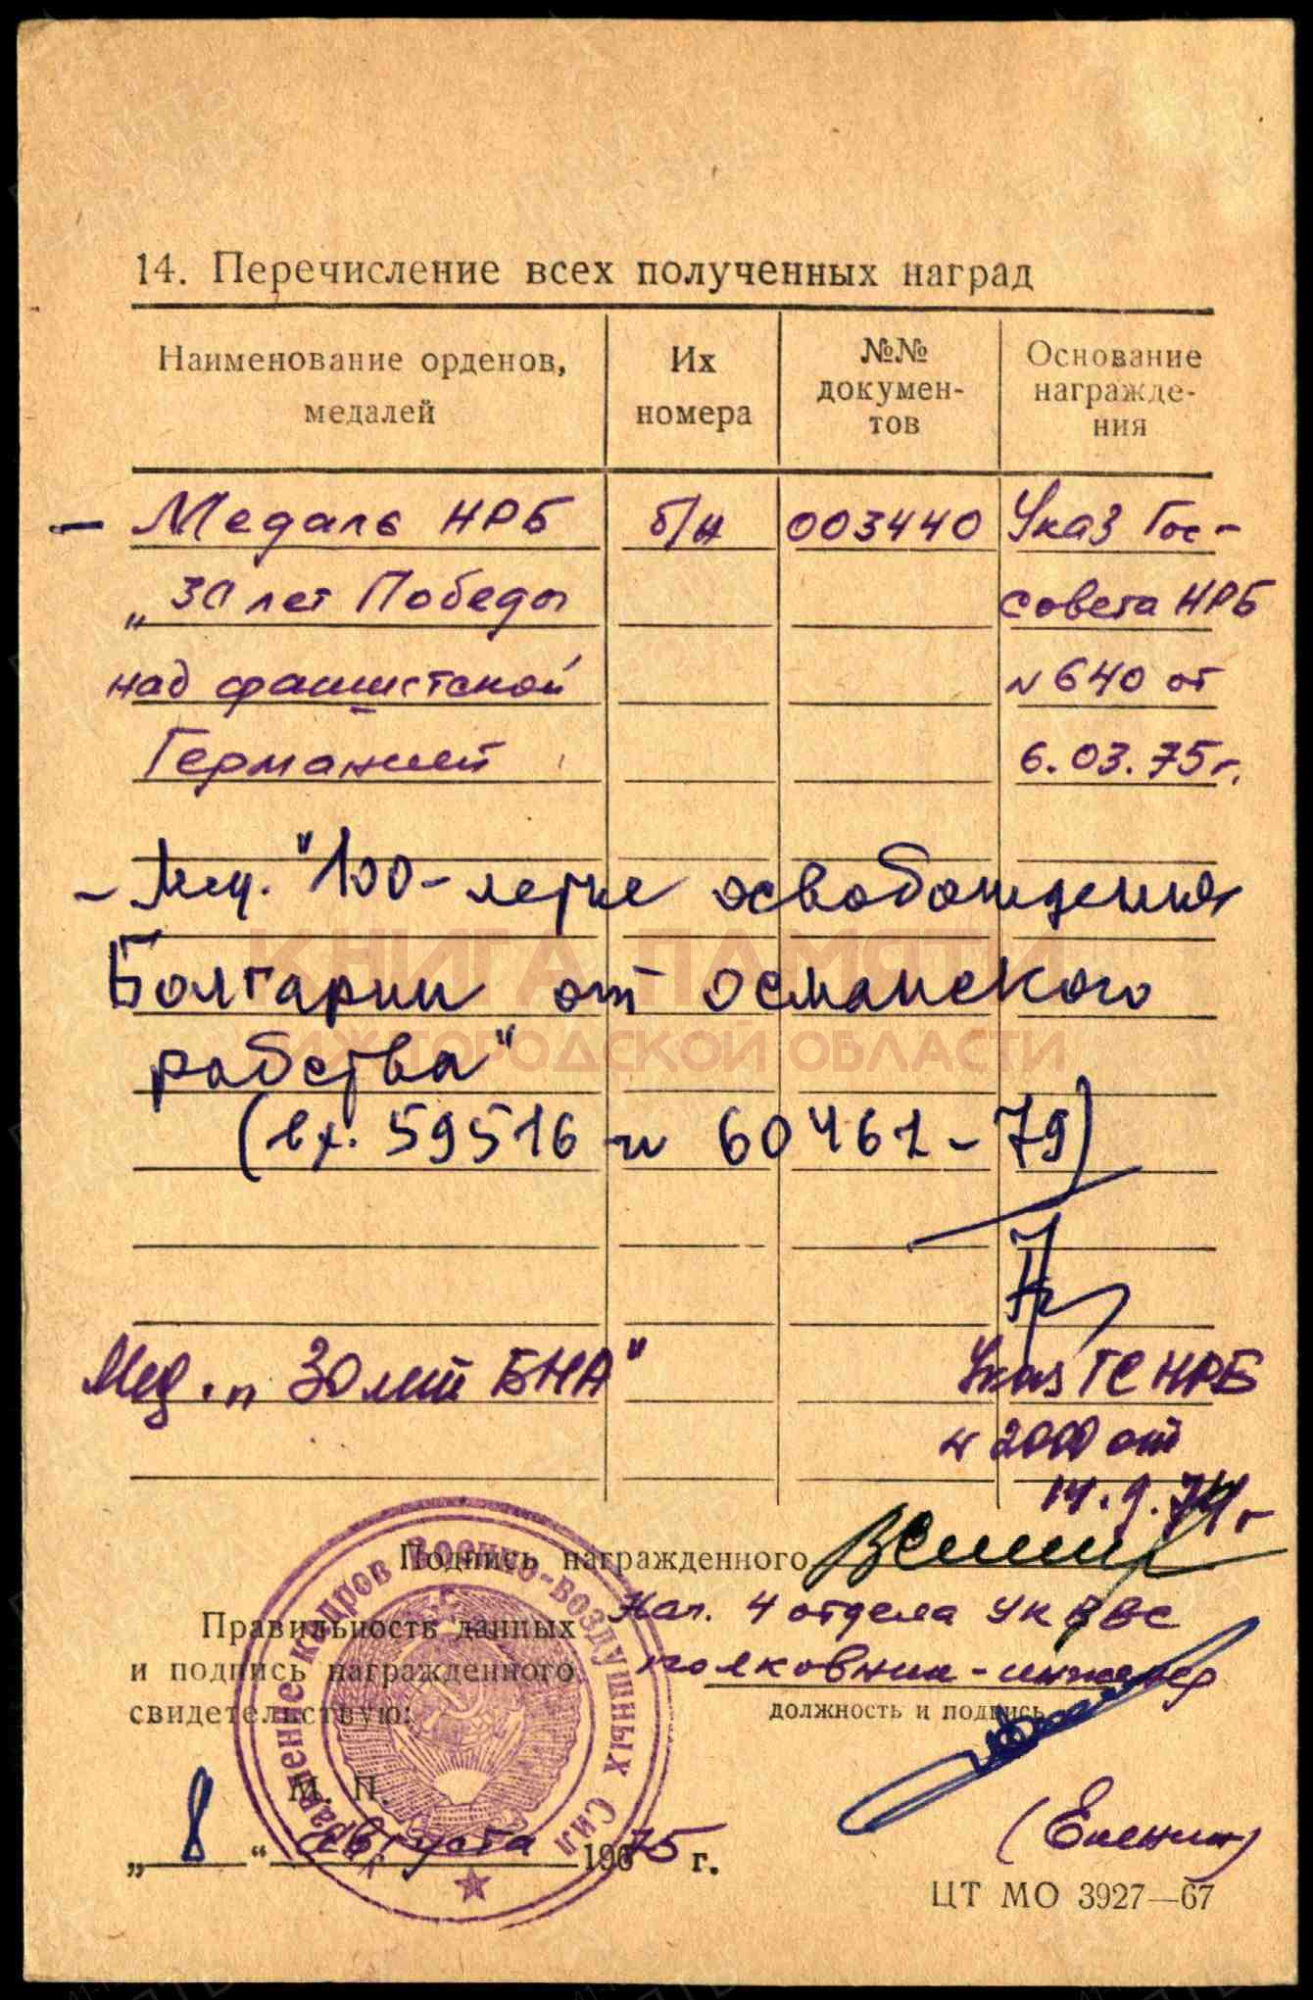 14. Перечисление всех полученных наград
Наименование орденов, медалей
Их номера
№№ докумен-
тов
Основание
награжде-
ния
– Медаль НРБ б/н 003440 Указ Гос-
„30 лет Победы совета НРБ
над фашистской N 640 от
Германией 6.03.75г.
– Мед. "100-летие освобождения
Болгарии от османского
рабства"
(вх. 59516 и 60461-79)
КНИГА ПАМЯТИ
НИЖЕГОРОДСКОЙ ОБЛАСТИ
Мед. „30 лет БНА" Указ ГС НРБ
N 2000 от
14.9.74г
Подпись награжденного
Нач. 4 отдела УК ВВС
Правильность данных
и подпись награжденного полковник-инженер
свидетельствую: должность и подпись
М. П.
„8“ августа 1975 г.
Управление кадров Военно-воздушных Сил
ЦТ МО 3927—67